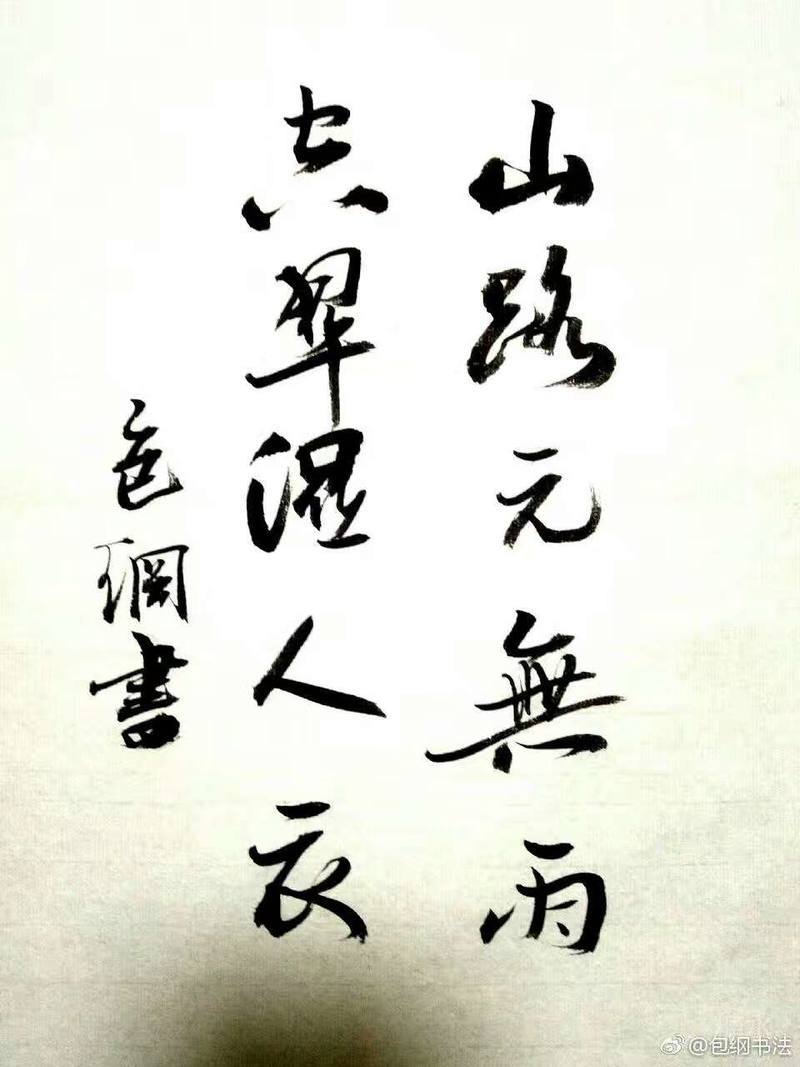 山路元無雨
空翠濕人衣
包綱書
@包纲书法